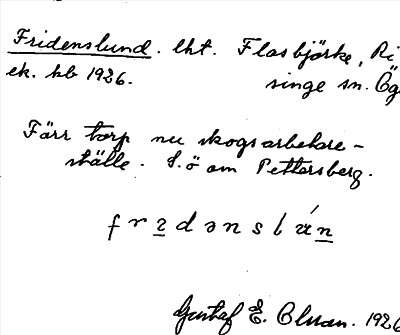 Fridenslund. lht. Flasbjörke, Ri
ek. hb 1926. singe sn. Ög
Färr torp nu skogsarbetare-
ställe. S.ö om Pettersberg.
f r 2 d ə n s l ú n
Gustaf E. 1926